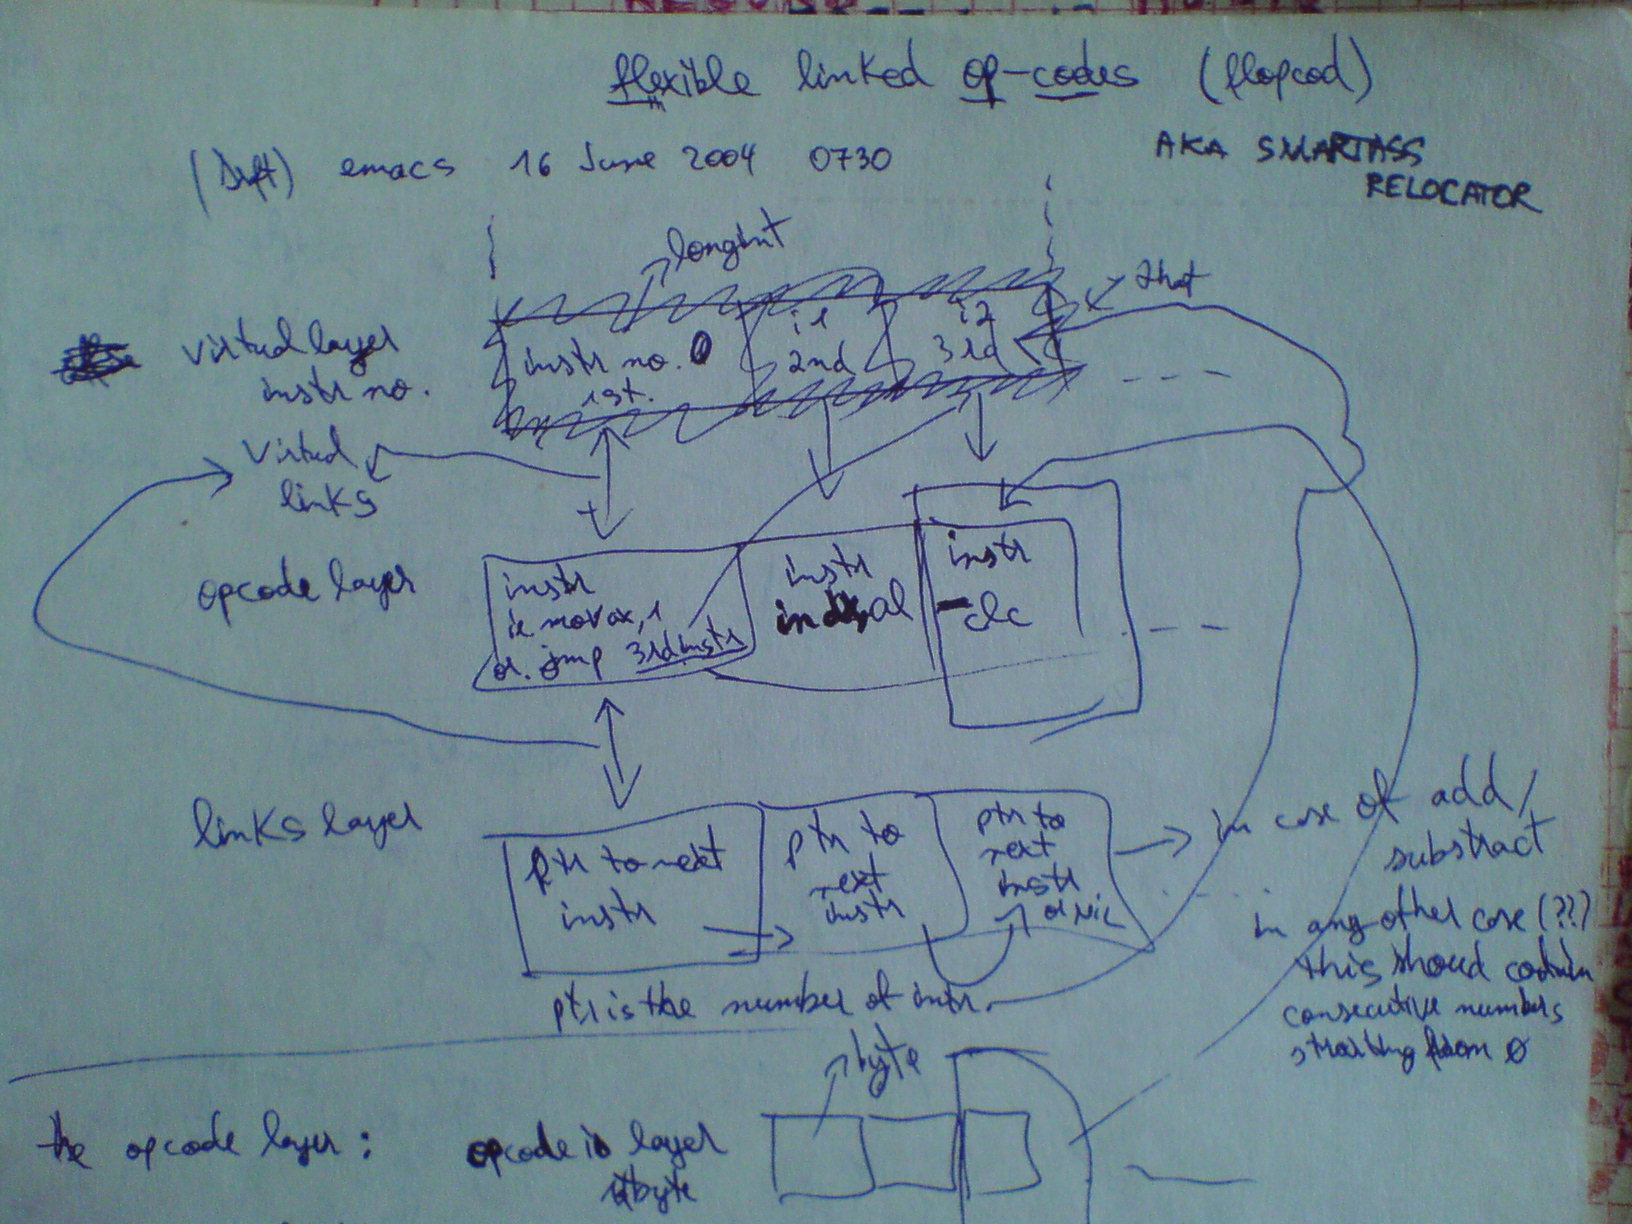 flexible linked op-codes (flopcod)
(Draft) emacs 16 June 2004 0730
AKA SMARTASS
RELOCATOR
longint
that
virtual layer
instr no.
instr no. 0
1st.
i1
2nd
i2
3rd
virtual
links
opcode layer
instr
ie mov ax,1
or. jmp 3rd instr
instr
al
instr
clc
links layer
ptr to next
instr
ptr to
next
instr
ptr to
next
instr
or NIL
in case of add/
substract
in any other case (??)
this shoud contain
consecutive numbers
starting from 0
ptr is the number of instr.
byte
the opcode layer: opcode layer
byte